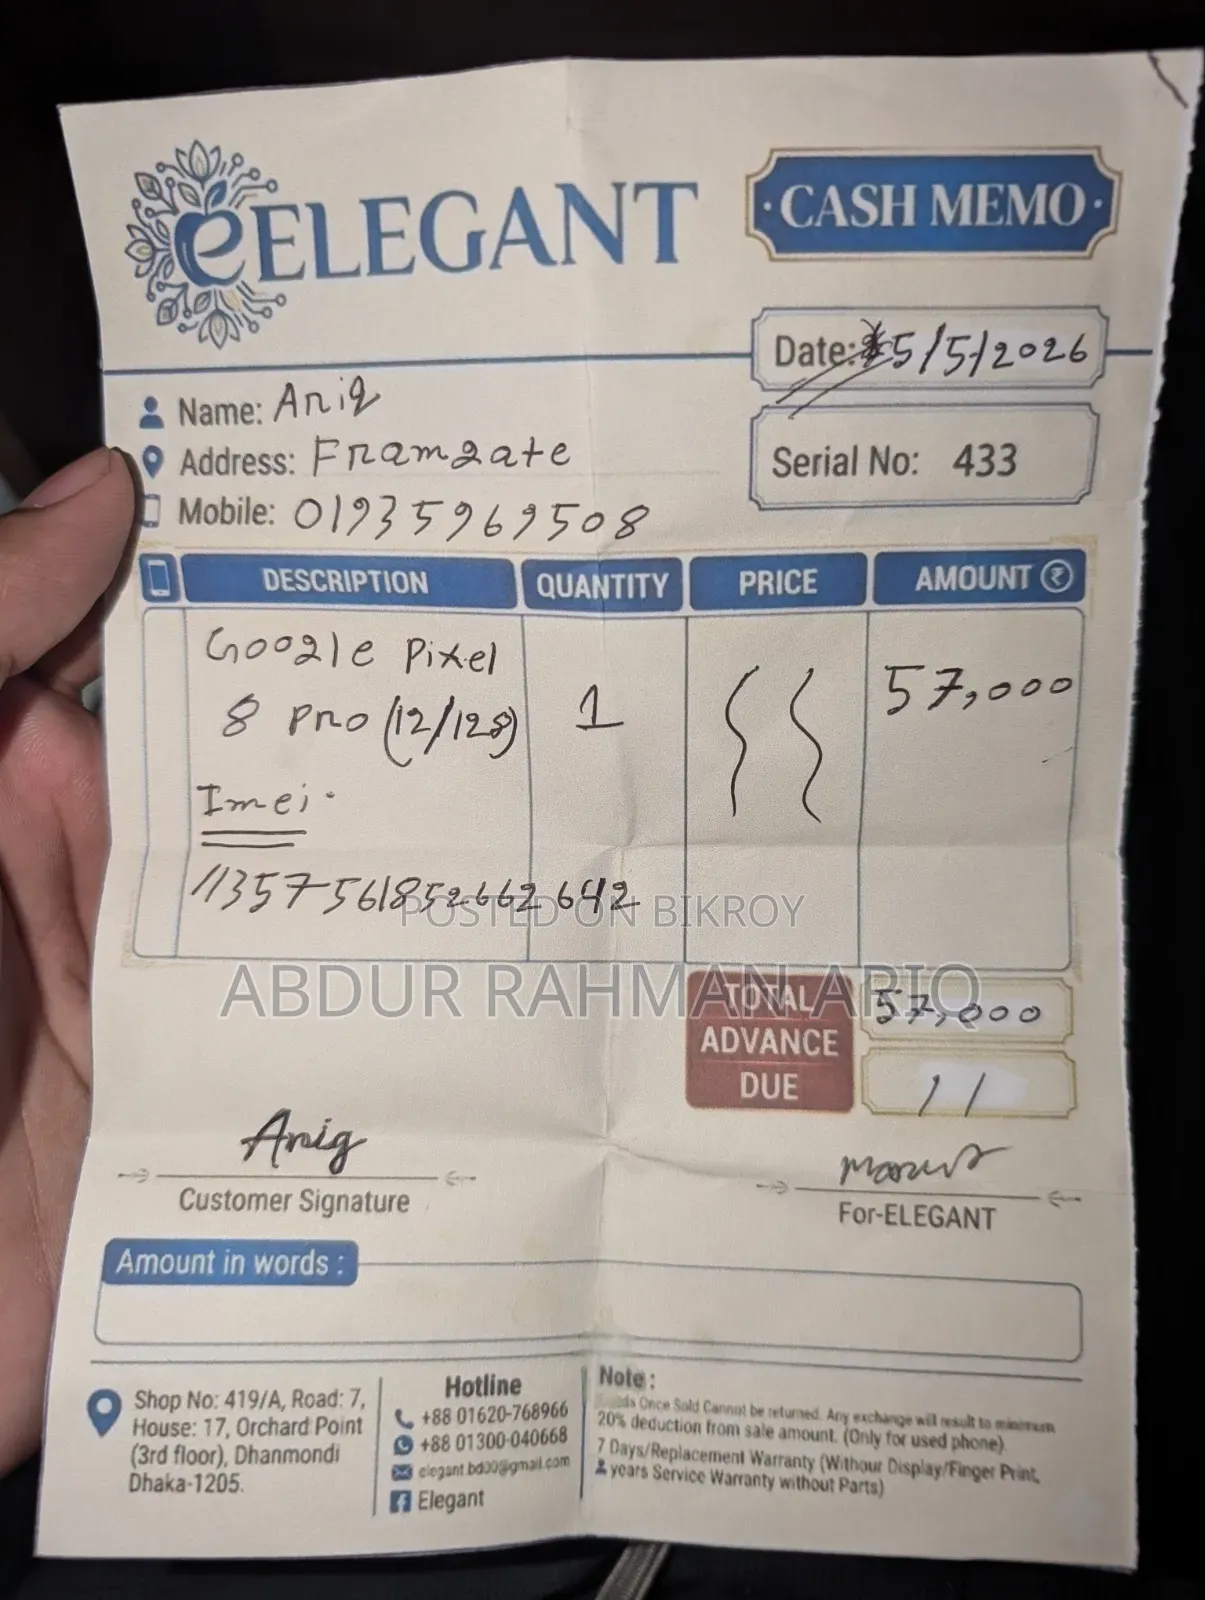 eELEGANT
CASH MEMO
Date: 5/5/2026
Name: Ariq
Address: Framgate
Serial No: 433
Mobile: 01935969508
DESCRIPTION QUANTITY PRICE AMOUNT ₹
Google Pixel
8 pro (12/128) 1 57,000
Imei.
POSTED ON BIKROY
ABDUR RAHMAN ARIQ
TOTAL 57,000
ADVANCE
DUE
Ariq
Customer Signature
For-ELEGANT
Amount in words :
Shop No: 419/A, Road: 7,
House: 17, Orchard Point
(3rd floor), Dhanmondi
Dhaka-1205.
Hotline
+88 01620-768966
+88 01300-040668
elegant.bd00@gmail.com
Elegant
Note :
Once Sold Cannot be returned. Any exchange will result to minimum
20% deduction from sale amount. (Only for used phone).
7 Days/Replacement Warranty (Withour Display/Finger Print,
years Service Warranty without Parts)